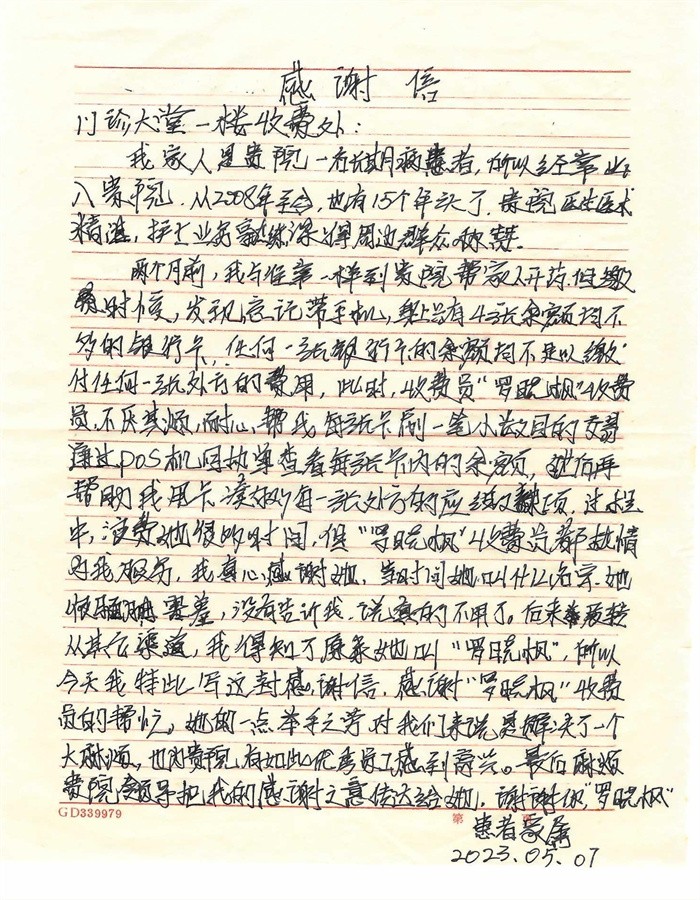 感谢信
门诊大堂一楼收费处：
我家人是贵院一名长期病患者，所以经常出
入贵院，从2008年至今，也有15个年头了，贵院医生医术
精湛，护士业务熟练深得周边群众称赞。
两个月前，我与往常一样到贵院帮家人开药，但缴
费时候，发现忘记带手机，身上只有4张余额均不
多的银行卡，任何一张银行卡的余额均不足以缴
付任何一张处方的费用，此时，收费员“罗晓枫”收费
员，不厌其烦，耐心帮我每张卡刷一笔小数目的交易
通过POS机回执单查看每张卡内的余额，然后再
帮助我用卡凑够每一张处方的应缴款项，过程
中，浪费她很多时间，但“罗晓枫”收费员都热情
为我服务，我真心感谢她，当时问她叫什么名字，她
很腼腆害羞，没有告诉我，说真的不用了。后来辗转
从其它渠道，我得知了原来她叫“罗晓枫”，所以
今天我特此写这封感谢信，感谢“罗晓枫”收费
员的帮忙，她的一点举手之劳对我们来说是解决了一个
大麻烦，也为贵院有如此优秀员工感到高兴。最后麻烦
贵院领导把我的感谢之意传达给她，谢谢你“罗晓枫”
GD339979 第
患者家属
2023.05.07